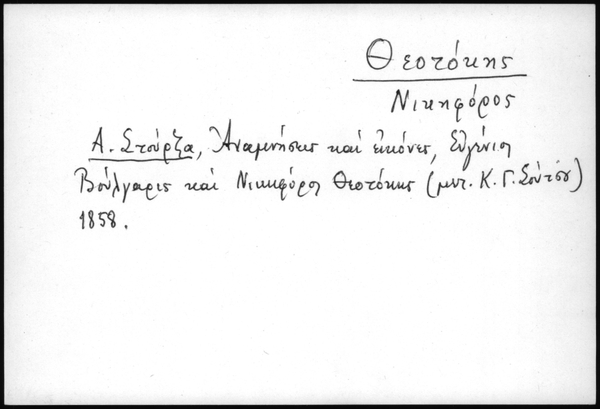 Θεοτόκης
Νικηφόρος
Α. Στούρζα, Ἀναμνήσεις καὶ εἰκόνες, Εὐγένιος
Βούλγαρις καὶ Νικηφόρος Θεοτόκης (μετ. Κ. Γ. Σούτσου)
1858.